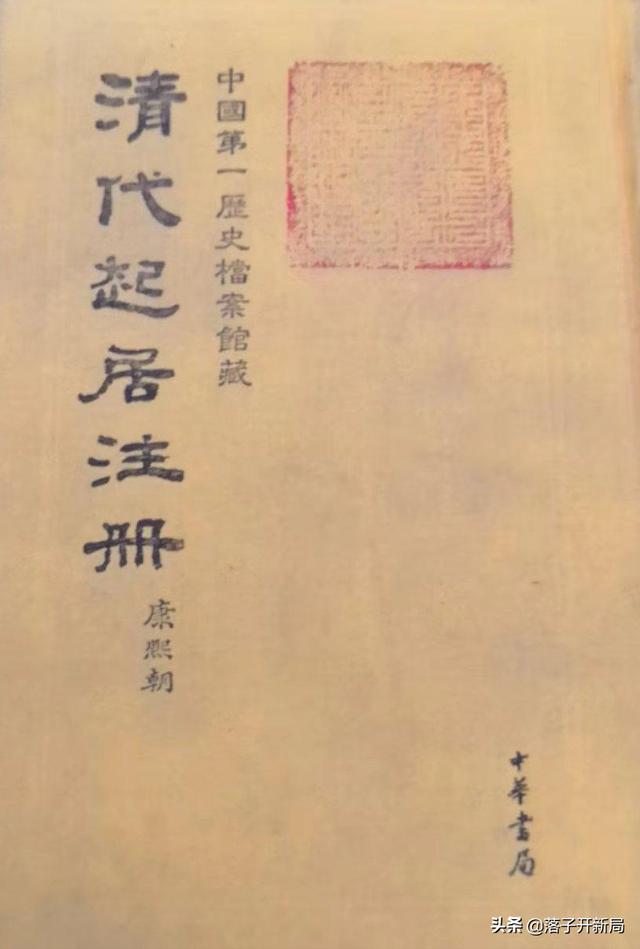 中國第一歷史檔案館藏
清代起居注冊
康熙朝
中華書局
头条 @落子开新局